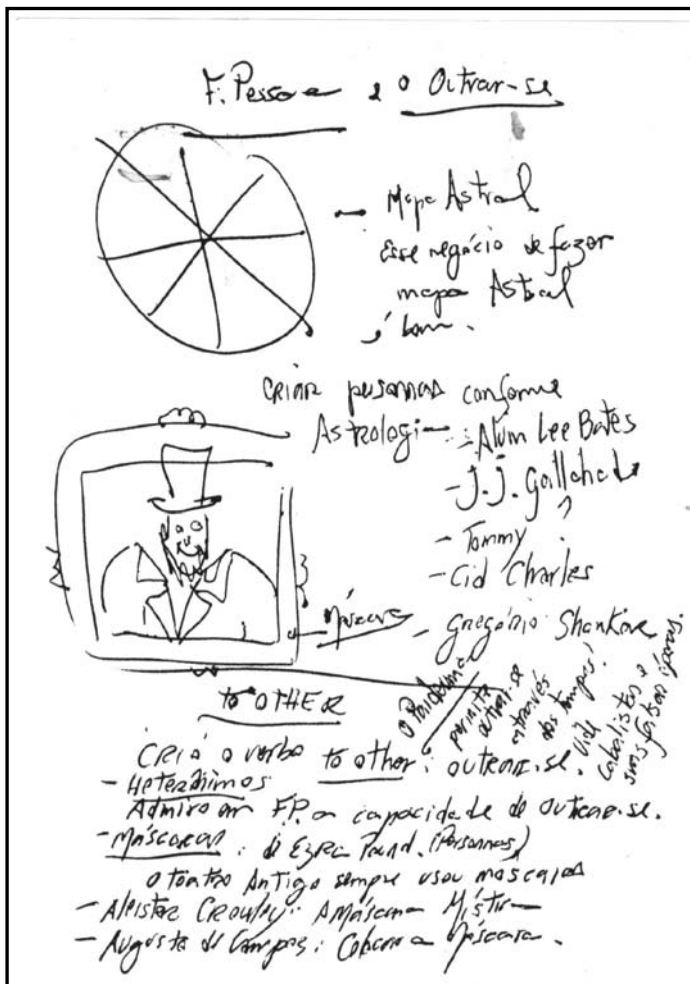 F. Pessoa e o Outrar-se
– Mapa Astral
Esse negócio de fazer
mapa Astral
é bom.
CRIAR personnas conforme
Astrologi
- Alvim Lee Bates
- J.J. Gallahade
- Tommy
- Cid Charles
- Gregório Shankara
Máscaras
to OTHER
permite
outrar-se
através
dos tempos!
Vide
Cabalistas e
suas falsas
CRIA o verbo to other: outrar-se.
- Heterônimos
Admiro em F.P. a capacidade de outrar-se.
- Máscaras: de Ezra Pound. (Personnas)
O teatro Antigo sempre usou mascaras
- Aleister Crowley: A Máscara
- Augusto de Campos: a Máscara.